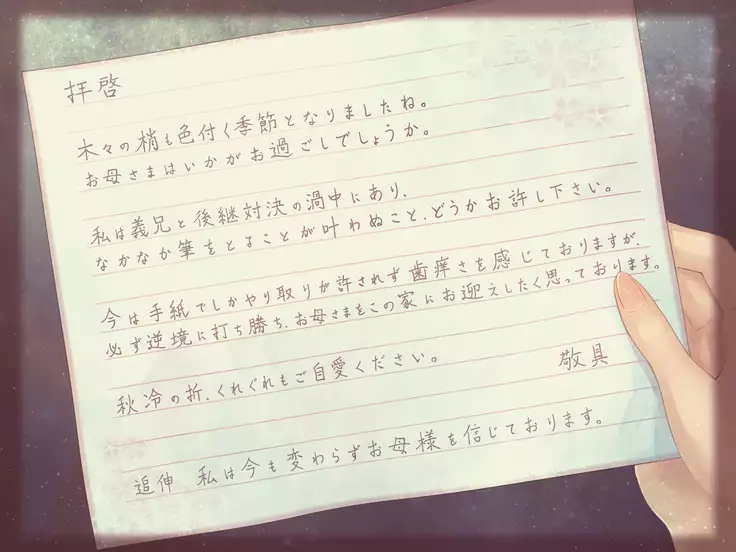 拝啓
木々の梢も色付く季節となりましたね。
お母さまはいかがお過ごしでしょうか。
私は義兄と後継対決の渦中にあり、
なかなか筆をとることが叶わぬこと、どうかお許し下さい。
今は手紙でしかやり取りが許されず歯痒さを感じておりますが、
必ず逆境に打ち勝ち、お母さまをこの家にお迎えしたく思っております。
秋冷の折、くれぐれもご自愛ください。
敬具
追伸 私は今も変わらずお母様を信じております。